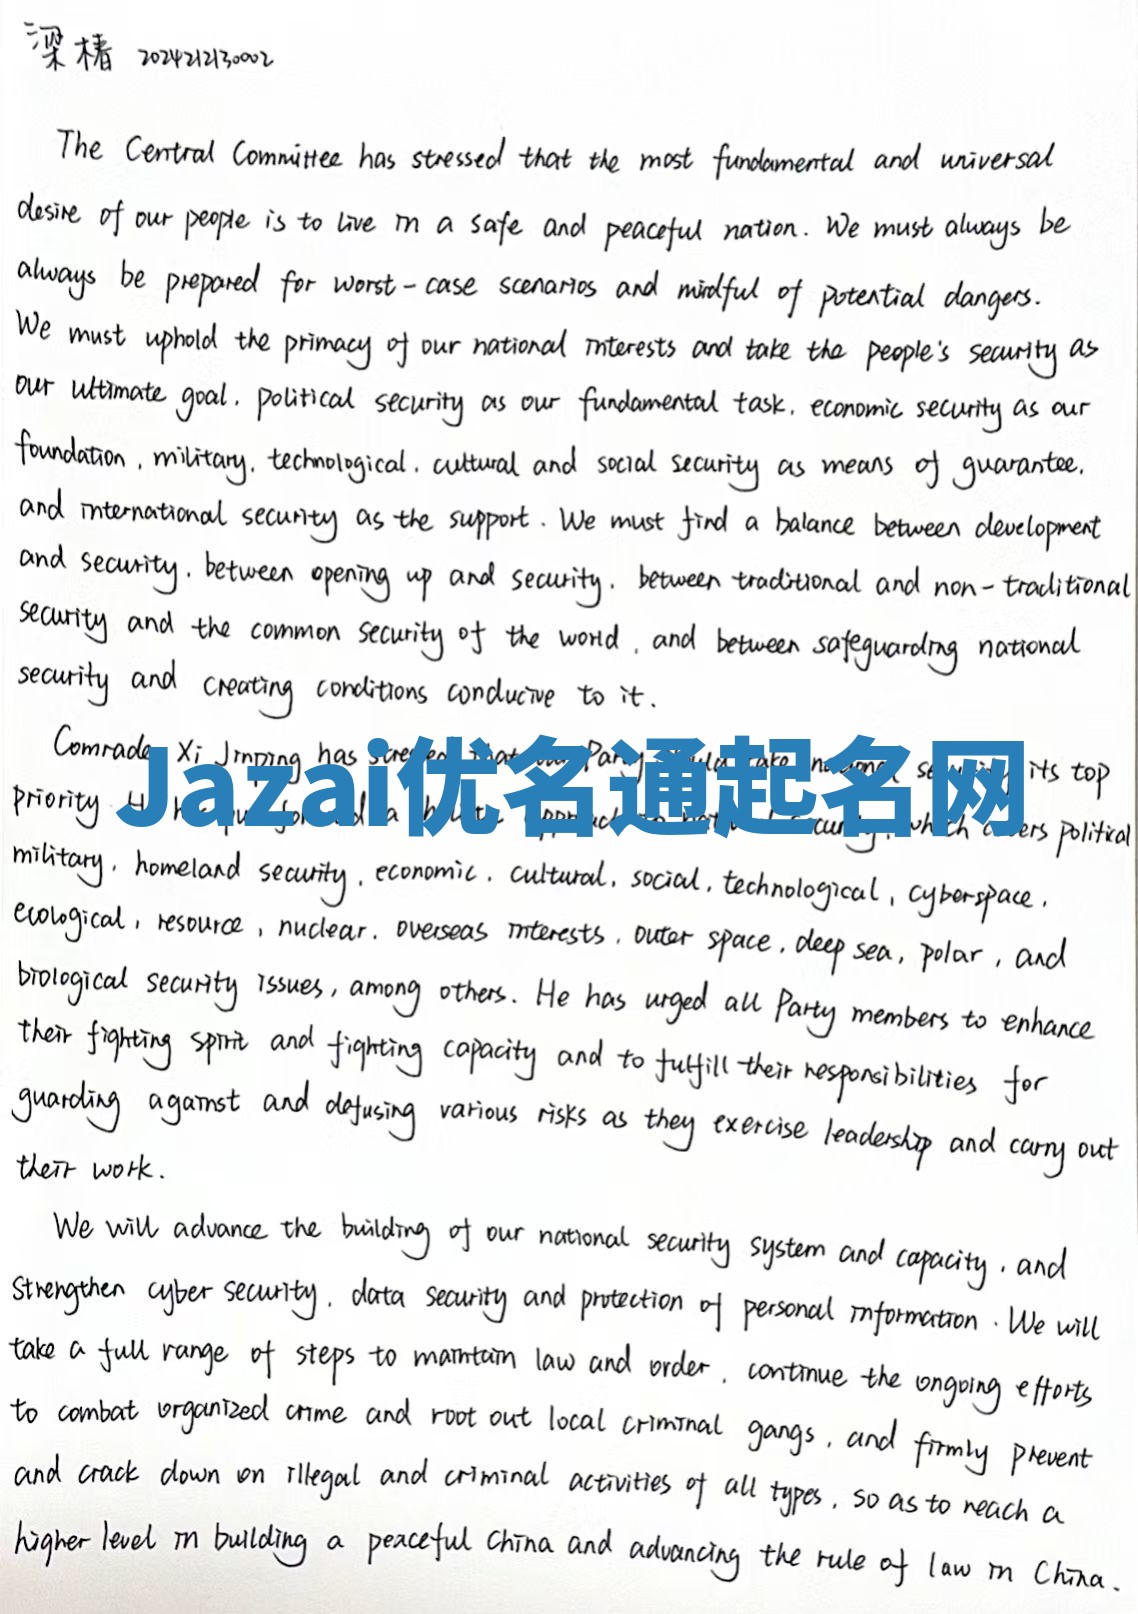 梁椿 2024212130002
The Central Committee has stressed that the most fundamental and universal
desire of our people is to live in a safe and peaceful nation. We must always be
always be prepared for worst-case scenarios and mindful of potential dangers.
We must uphold the primacy of our national interests and take the people's security as
our ultimate goal, political security as our fundamental task, economic security as our
foundation, military, technological, cultural and social security as means of guarantee,
and international security as the support. We must find a balance between development
and security, between opening up and security, between traditional and non-traditional
security and the common security of the world, and between safeguarding national
security and creating conditions conducive to it.
Comrade Xi Jinping has that Party take its top
Jazai优名通起名网
priority a which political
military, homeland security, economic, cultural, social, technological, cyberspace,
ecological, resource, nuclear, overseas interests, outer space, deep sea, polar, and
biological security issues, among others. He has urged all Party members to enhance
their fighting spirit and fighting capacity and to fulfill their responsibilities for
guarding against and defusing various risks as they exercise leadership and carry out
their work.
We will advance the building of our national security system and capacity, and
strengthen cyber security, data security and protection of personal information. We will
take a full range of steps to maintain law and order, continue the ongoing efforts
to combat organized crime and root out local criminal gangs, and firmly prevent
and crack down on illegal and criminal activities of all types, so as to reach a
higher level in building a peaceful China and advancing the rule of law in China.